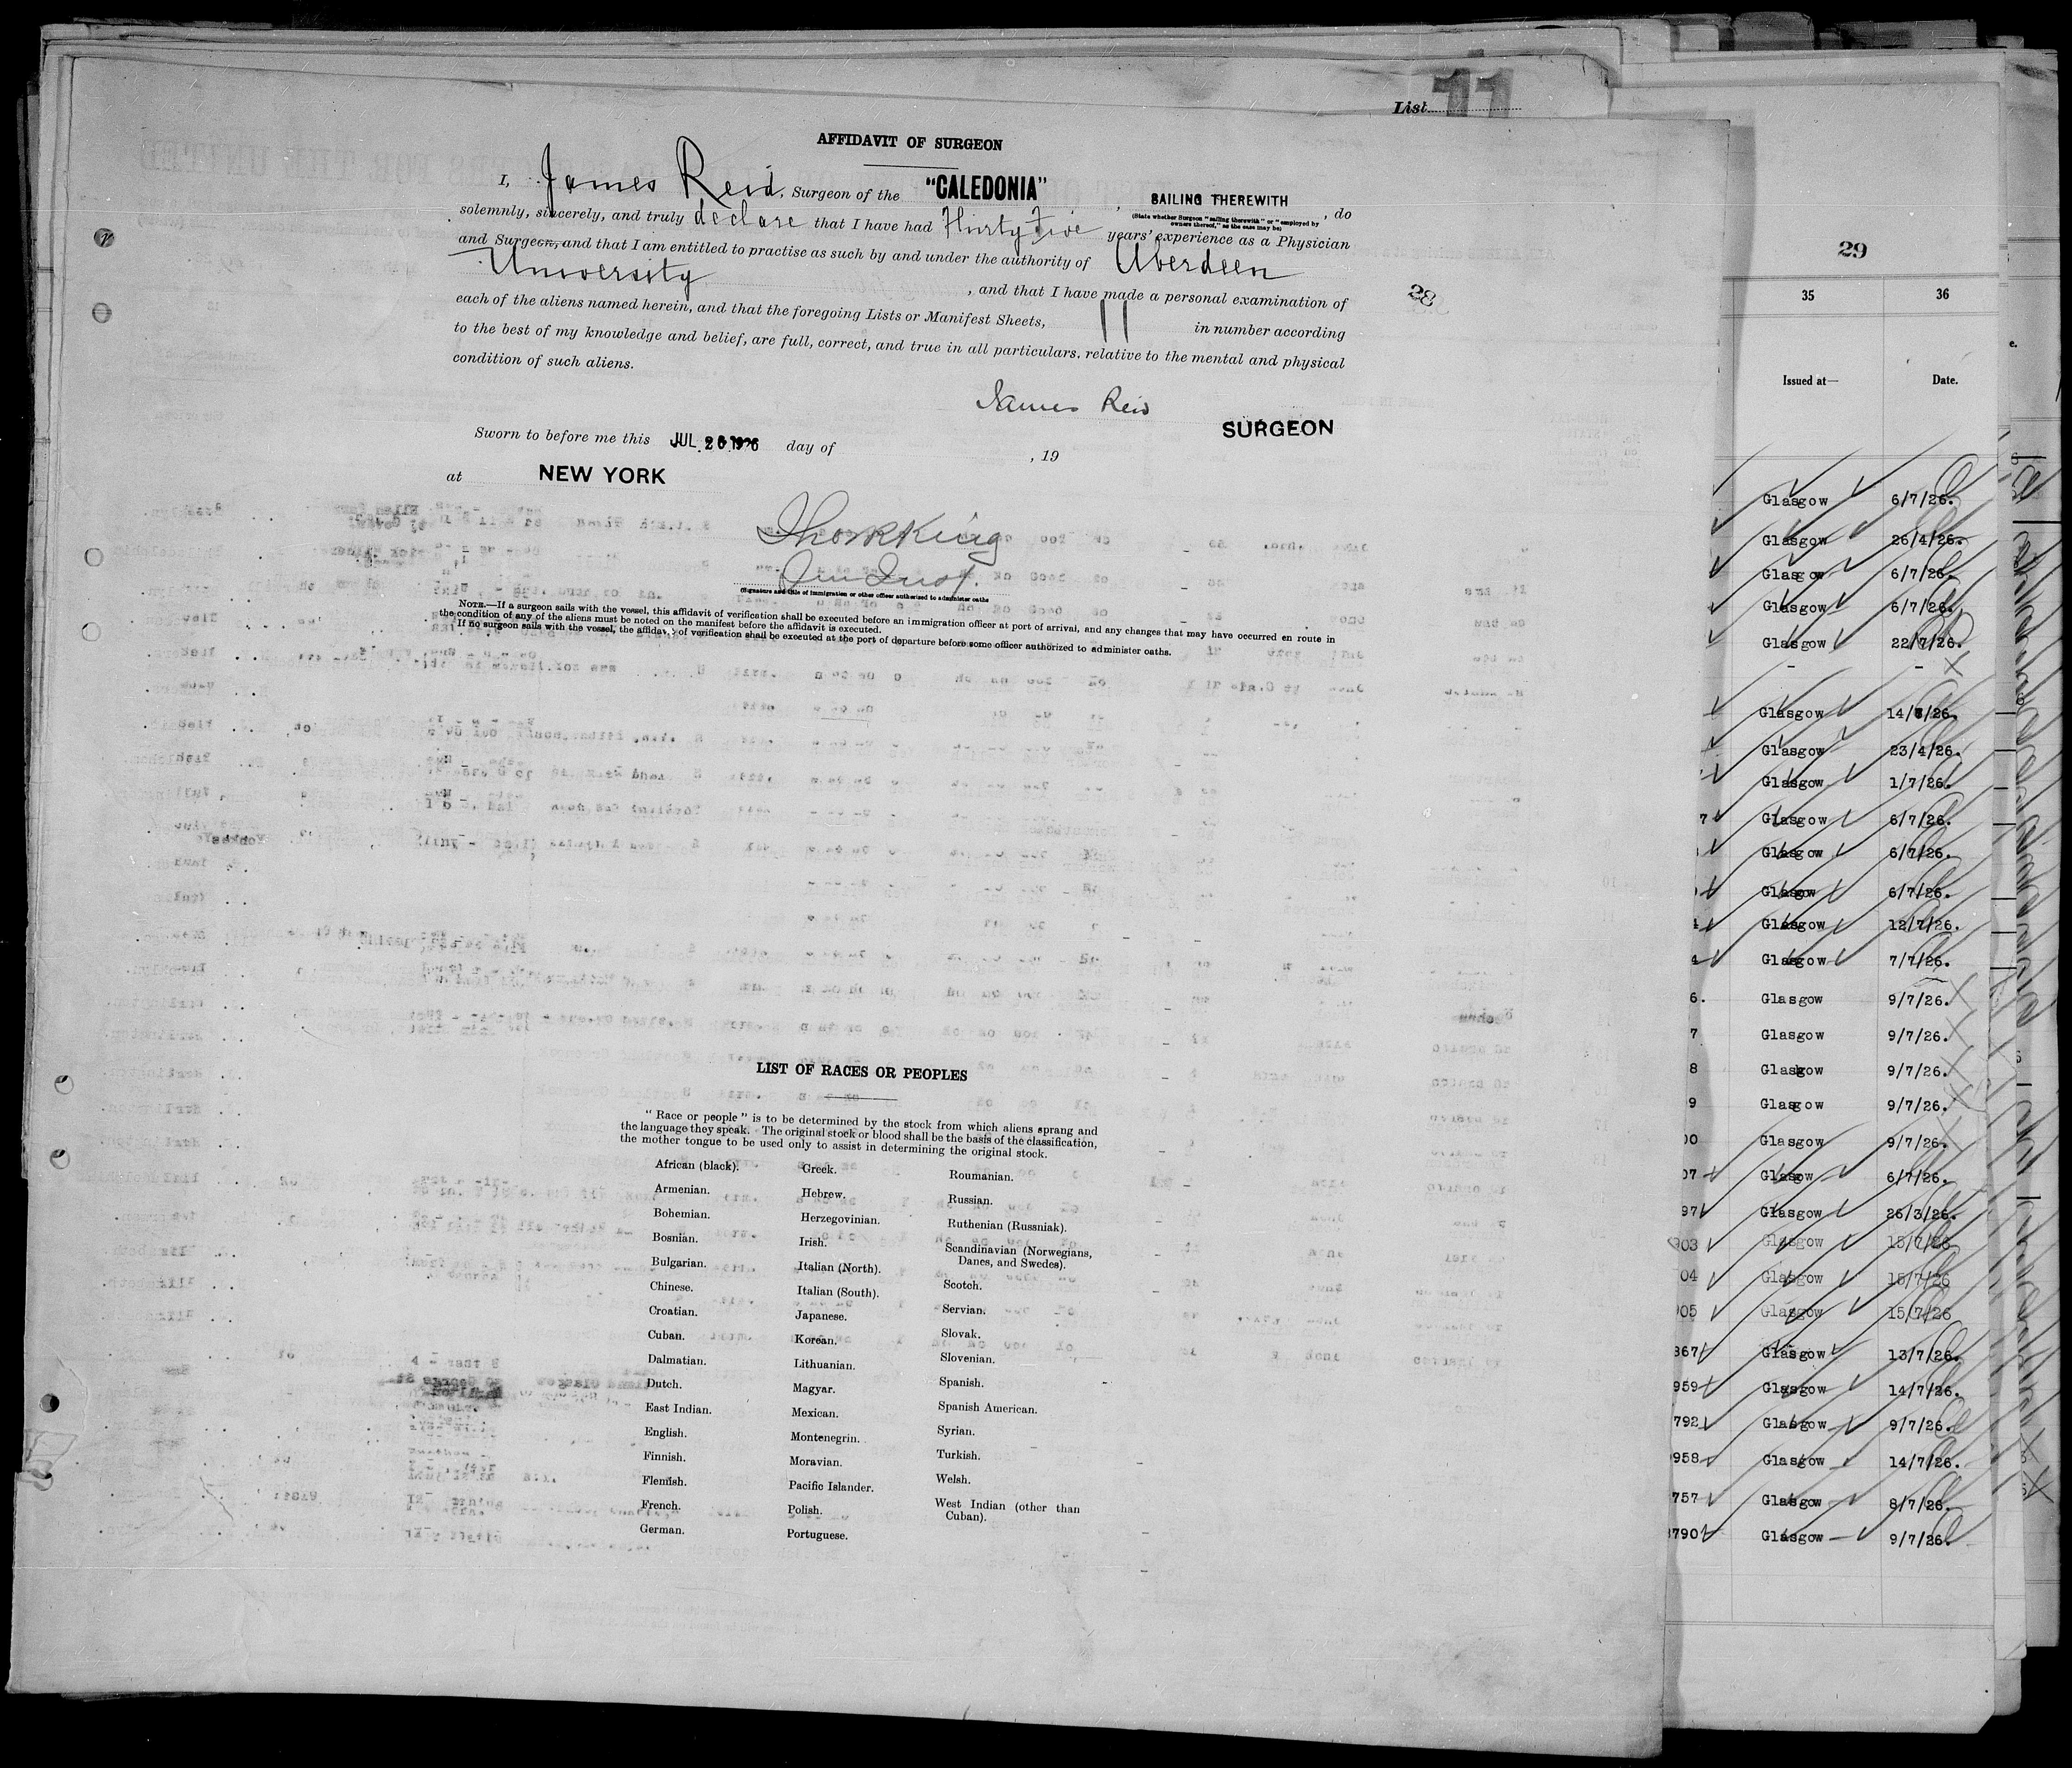 List 11
AFFIDAVIT OF SURGEON
I, James Reid, Surgeon of the "CALEDONIA", SAILING THEREWITH, do
(State whether Surgeon "sailing therewith" or "employed by
owners thereof," as the case may be)
solemnly, sincerely, and truly declare that I have had Thirty Five years' experience as a Physician
and Surgeon, and that I am entitled to practise as such by and under the authority of Aberdeen
University, and that I have made a personal examination of
each of the aliens named herein, and that the foregoing Lists or Manifest Sheets, 11 in number according
to the best of my knowledge and belief, are full, correct, and true in all particulars, relative to the mental and physical
condition of such aliens.
28
James Reid
SURGEON
Sworn to before me this JUL 26 1926 day of , 19
at NEW YORK
(Signature and title of immigration or other officer authorized to administer oaths
NOTE.—If a surgeon sails with the vessel, this affidavit of verification shall be executed before an immigration officer at port of arrival, and any changes that may have occurred en route in
the condition of any of the aliens must be noted on the manifest before the affidavit is executed.
If no surgeon sails with the vessel, the affidavit of verification shall be executed at the port of departure before some officer authorized to administer oaths.
LIST OF RACES OR PEOPLES
"Race or people" is to be determined by the stock from which aliens sprang and
the language they speak. The original stock or blood shall be the basis of the classification,
the mother tongue to be used only to assist in determining the original stock.
African (black).
Armenian.
Bohemian.
Bosnian.
Bulgarian.
Chinese.
Croatian.
Cuban.
Dalmatian.
Dutch.
East Indian.
English.
Finnish.
Flemish.
French.
German.
Greek.
Hebrew.
Herzegovinian.
Irish.
Italian (North).
Italian (South).
Japanese.
Korean.
Lithuanian.
Magyar.
Mexican.
Montenegrin.
Moravian.
Pacific Islander.
Polish.
Portuguese.
Roumanian.
Russian.
Ruthenian (Russniak).
Scandinavian (Norwegians,
Danes, and Swedes).
Scotch.
Servian.
Slovak.
Slovenian.
Spanish.
Spanish American.
Syrian.
Turkish.
Welsh.
West Indian (other than
Cuban).
29
35 36
Issued at— Date.
Glasgow 6/7/26.
Glasgow 26/4/26.
Glasgow 6/7/26.
Glasgow 6/7/26.
Glasgow 22/7/26.
- -
Glasgow 14/ /26.
Glasgow 23/4/26.
Glasgow 1/7/26.
7 Glasgow 6/7/26.
Glasgow 6/7/26.
Glasgow 6/7/26.
4 Glasgow 12/7/26.
4 Glasgow 7/7/26.
6. Glasgow 9/7/26.
7 Glasgow 9/7/26.
8 Glasgow 9/7/26.
9 Glasgow 9/7/26.
00 Glasgow 9/7/26.
07 Glasgow 6/7/26.
97 Glasgow 26/3/26.
903 Glasgow 15/7/26
04 Glasgow 15/7/26
905 Glasgow 15/7/26
867 Glasgow 13/7/26.
959 Glasgow 14/7/26.
792 Glasgow 9/7/26.
958 Glasgow 14/7/26.
757 Glasgow 8/7/26.
790 Glasgow 9/7/26.